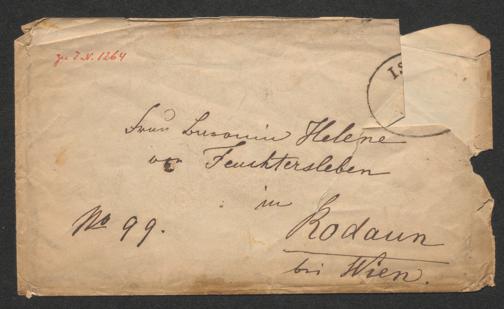 zu I.N. 1264
IS
Frau Baronin Helene
von Feuchtersleben
in
No 99.
Rodaun
bei Wien.